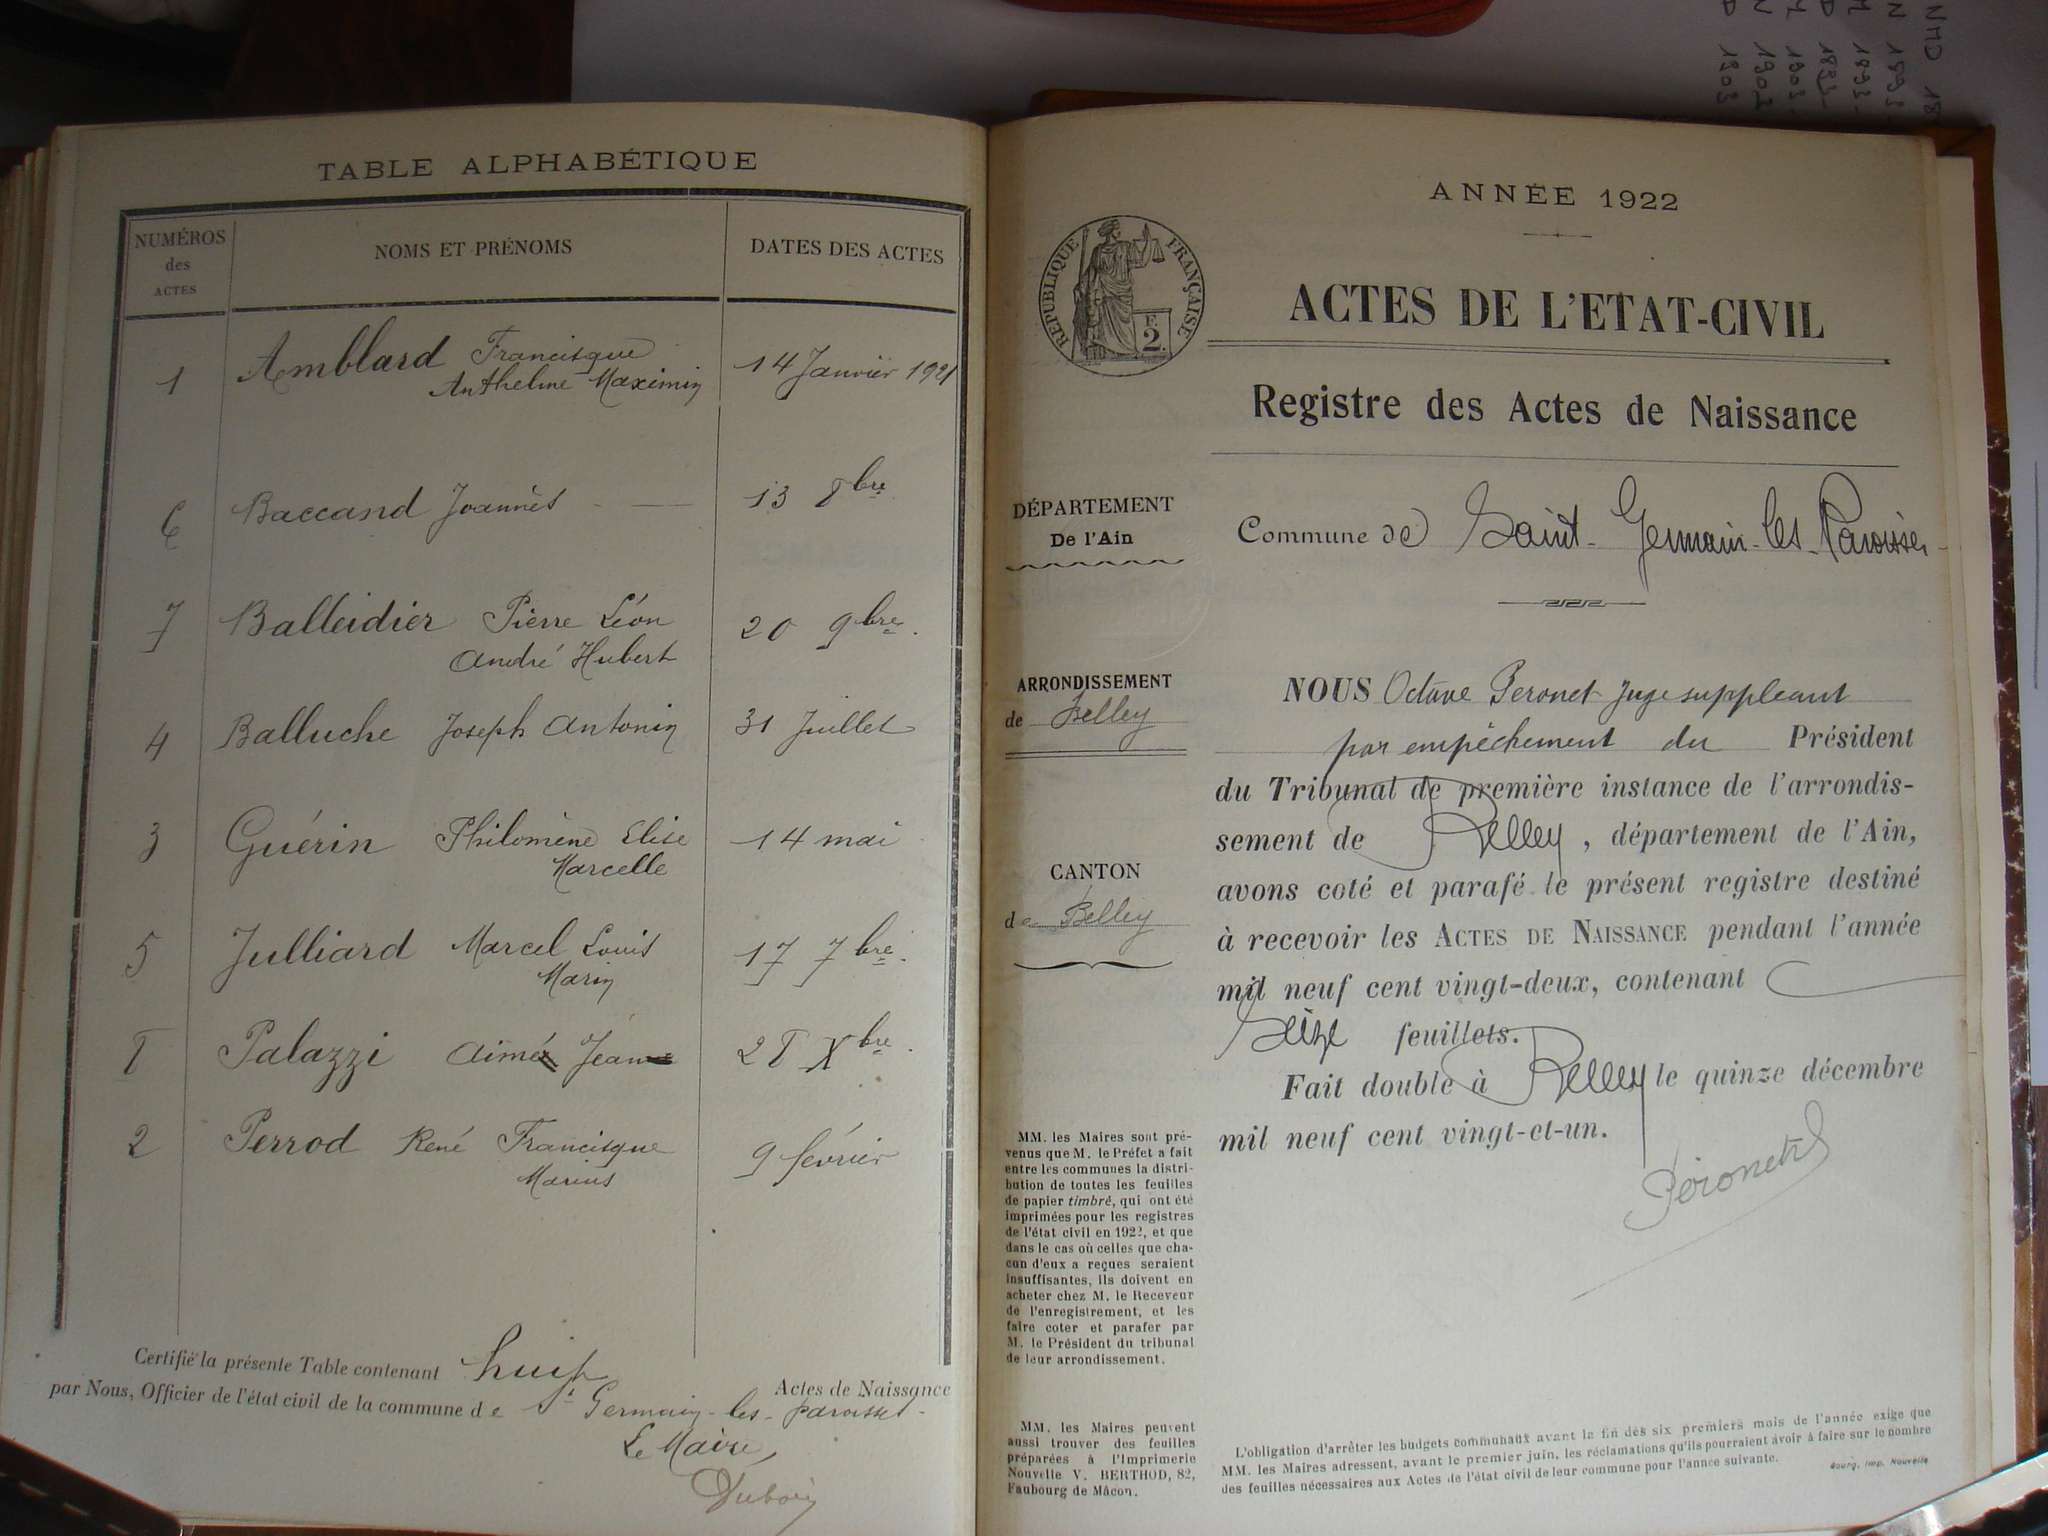 TABLE ALPHABÉTIQUE
NUMÉROS des ACTES NOMS ET PRÉNOMS DATES DES ACTES
1 Amblard Francisque 14 Janvier 1921
Anthelme Maximin
6 Baccand Joannès 13 8bre
7 Balleidier Pierre Léon 20 9bre.
André Hubert
4 Balluche Joseph Antonin 31 Juillet
3 Guérin Philomène Elise 14 mai
Marcelle
5 Julliard Marcel Louis 17 7bre.
Marin
8 Palazzi Aimé Jean 28 Xbre.
2 Perrod René Francisque 9 février
Marius
Certifié la présente Table contenant huit Actes de Naissance
par Nous, Officier de l'état civil de la commune de St Germain-les-paroisses-
Le Maire
Dubois
ANNÉE 1922
RÉPUBLIQUE FRANÇAISE
F.
2.
ACTES DE L'ETAT-CIVIL
Registre des Actes de Naissance
DÉPARTEMENT
De l'Ain
Commune de Saint-Germain-les-Paroisses-
ARRONDISSEMENT
de Belley
CANTON
de Belley
NOUS Octave Peronet Juge suppleant
par empêchement du Président
du Tribunal de première instance de l'arrondis-
sement de Belley, département de l'Ain,
avons coté et parafé le présent registre destiné
à recevoir les ACTES DE NAISSANCE pendant l'année
mil neuf cent vingt-deux, contenant
Seize feuillets.
Fait double à Belley le quinze décembre
mil neuf cent vingt-et-un.
Péronet
MM. les Maires sont pré-
venus que M. le Préfet a fait
entre les communes la distri-
bution de toutes les feuilles
de papier timbré, qui ont été
imprimées pour les registres
de l'état civil en 1922, et que
dans le cas où celles que cha-
cun d'eux a reçues seraient
insuffisantes, ils doivent en
acheter chez M. le Receveur
de l'enregistrement, et les
faire coter et parafer par
M. le Président du tribunal
de leur arrondissement.
MM. les Maires peuvent
aussi trouver des feuilles
préparées à l'Imprimerie
Nouvelle V. BERTHOD, 82,
Faubourg de Mâcon.
L'obligation d'arrêter les budgets communaux avant la fin des six premiers mois de l'année exige que
MM. les Maires adressent, avant le premier juin, les réclamations qu'ils pourraient avoir à faire sur le nombre
des feuilles nécessaires aux Actes de l'état civil de leur commune pour l'année suivante.
Bourg, Imp. Nouvelle
NMD 18
N 1893
M 1893
D 1893
M 1903
N 1902
D 1903